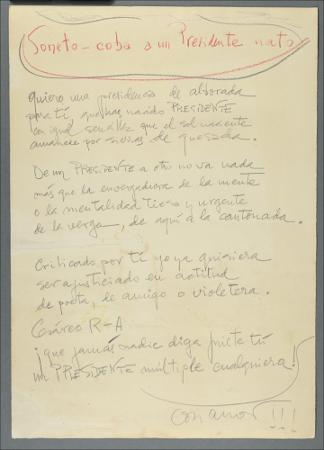 Soneto-coba a un Presidente nato
quiero una presidencia de alborada
para ti, que has nacido PRESIDENTE
en igual sencillez que el sol naciente
amanece por sierras de quesada.
De un PRESIDENTE a otro no va nada
más que la envergadura de la mente
o la mentalidad tiesa y urgente
de la verga, de aquí a la cantonada.
Criticado por ti yo ya quisiera
ser ajusticiado en actitud
de poeta, de amigo o violetera.
Cesáreo R-A
¡que jamás nadie diga fuiste tú
un PRESIDENTE múltiple cualquiera!
con amor!!!